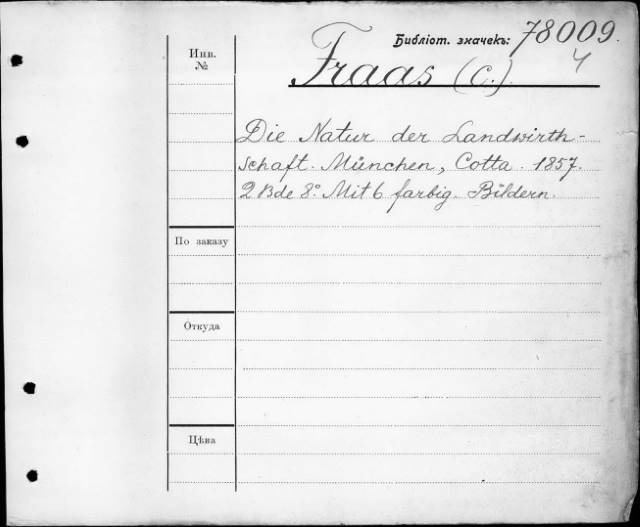 Библіот. значекъ: 78009.
4
Инв.
№
Fraas (C.)
Die Natur der Landwirth-
schaft. München, Cotta. 1857.
2 Bde 8.° Mit 6 farbig. Bildern.
По заказу
Откуда
Цѣна